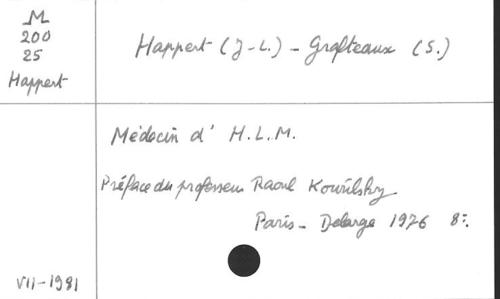 M
200
25
Happert
Happert (J-L.) - Grafteaux (S.)
Médecin d' H.L.M.
Préface du professeur Raoul Kourilsky
Paris - Delarge 1976 8:
VII-1981